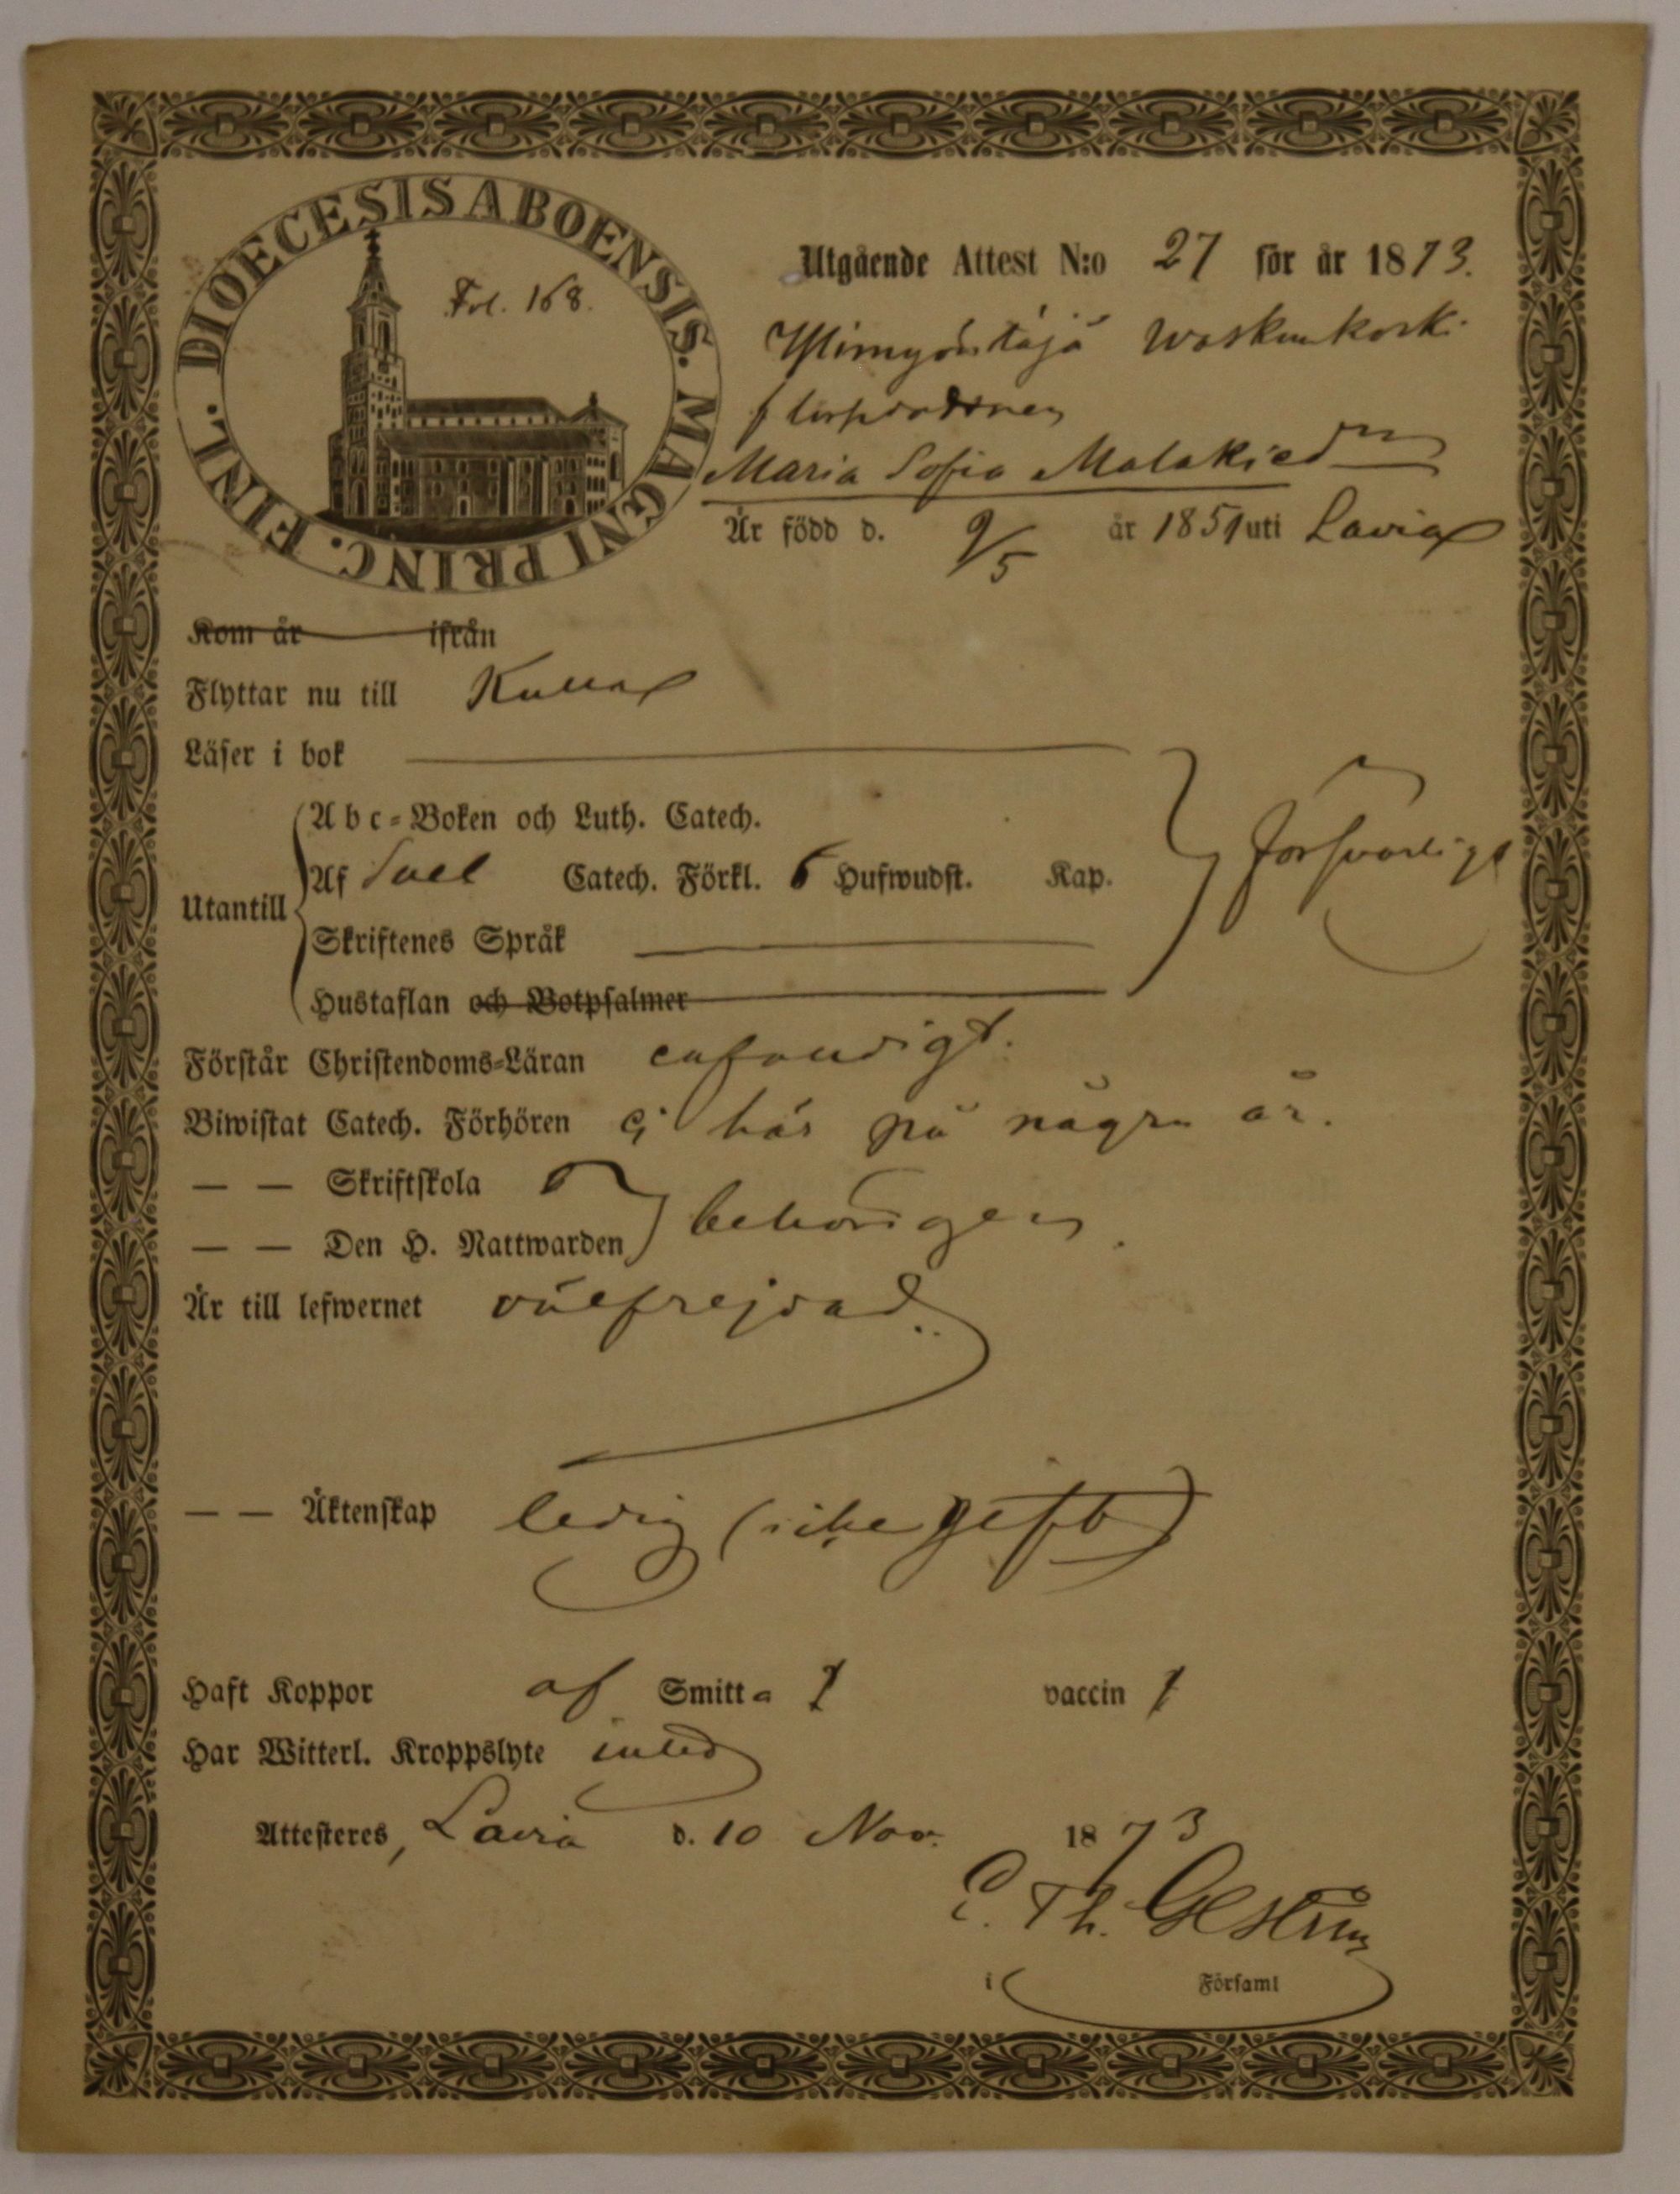 DIOECESIS ABOENSIS. MAGNI PRINC. FINL.
Fol. 168.
Utgående Attest N:o 27 för år 1873.
Maria Sofia Malakied
Är född d. 9/5 år 1851 uti Lavia
Kom år ifrån
Flyttar nu till Kulla
Läser i bok
Utantill
Abc-Boken och Luth. Catech.
Af Svel Catech. Förkl. 6 Hufwudst. Kap.
försvarligt
Skriftenes Språk
Hustaflan och Botpsalmer
Förstår Christendoms-Läran enfaldigt.
Biwistat Catech. Förhören ej här på några år.
— — Skriftskola
behörigen
— — Den H. Nattwarden
Är till lefwernet välfrejdad.
— — Äktenskap ledig (icke gift)
Haft Koppor af Smitta 1 vaccin 1
Har Witterl. Kroppslyte
Attesteres, Lavia d. 10 Nov. 1873
C. Th. Gestrin
i Församl